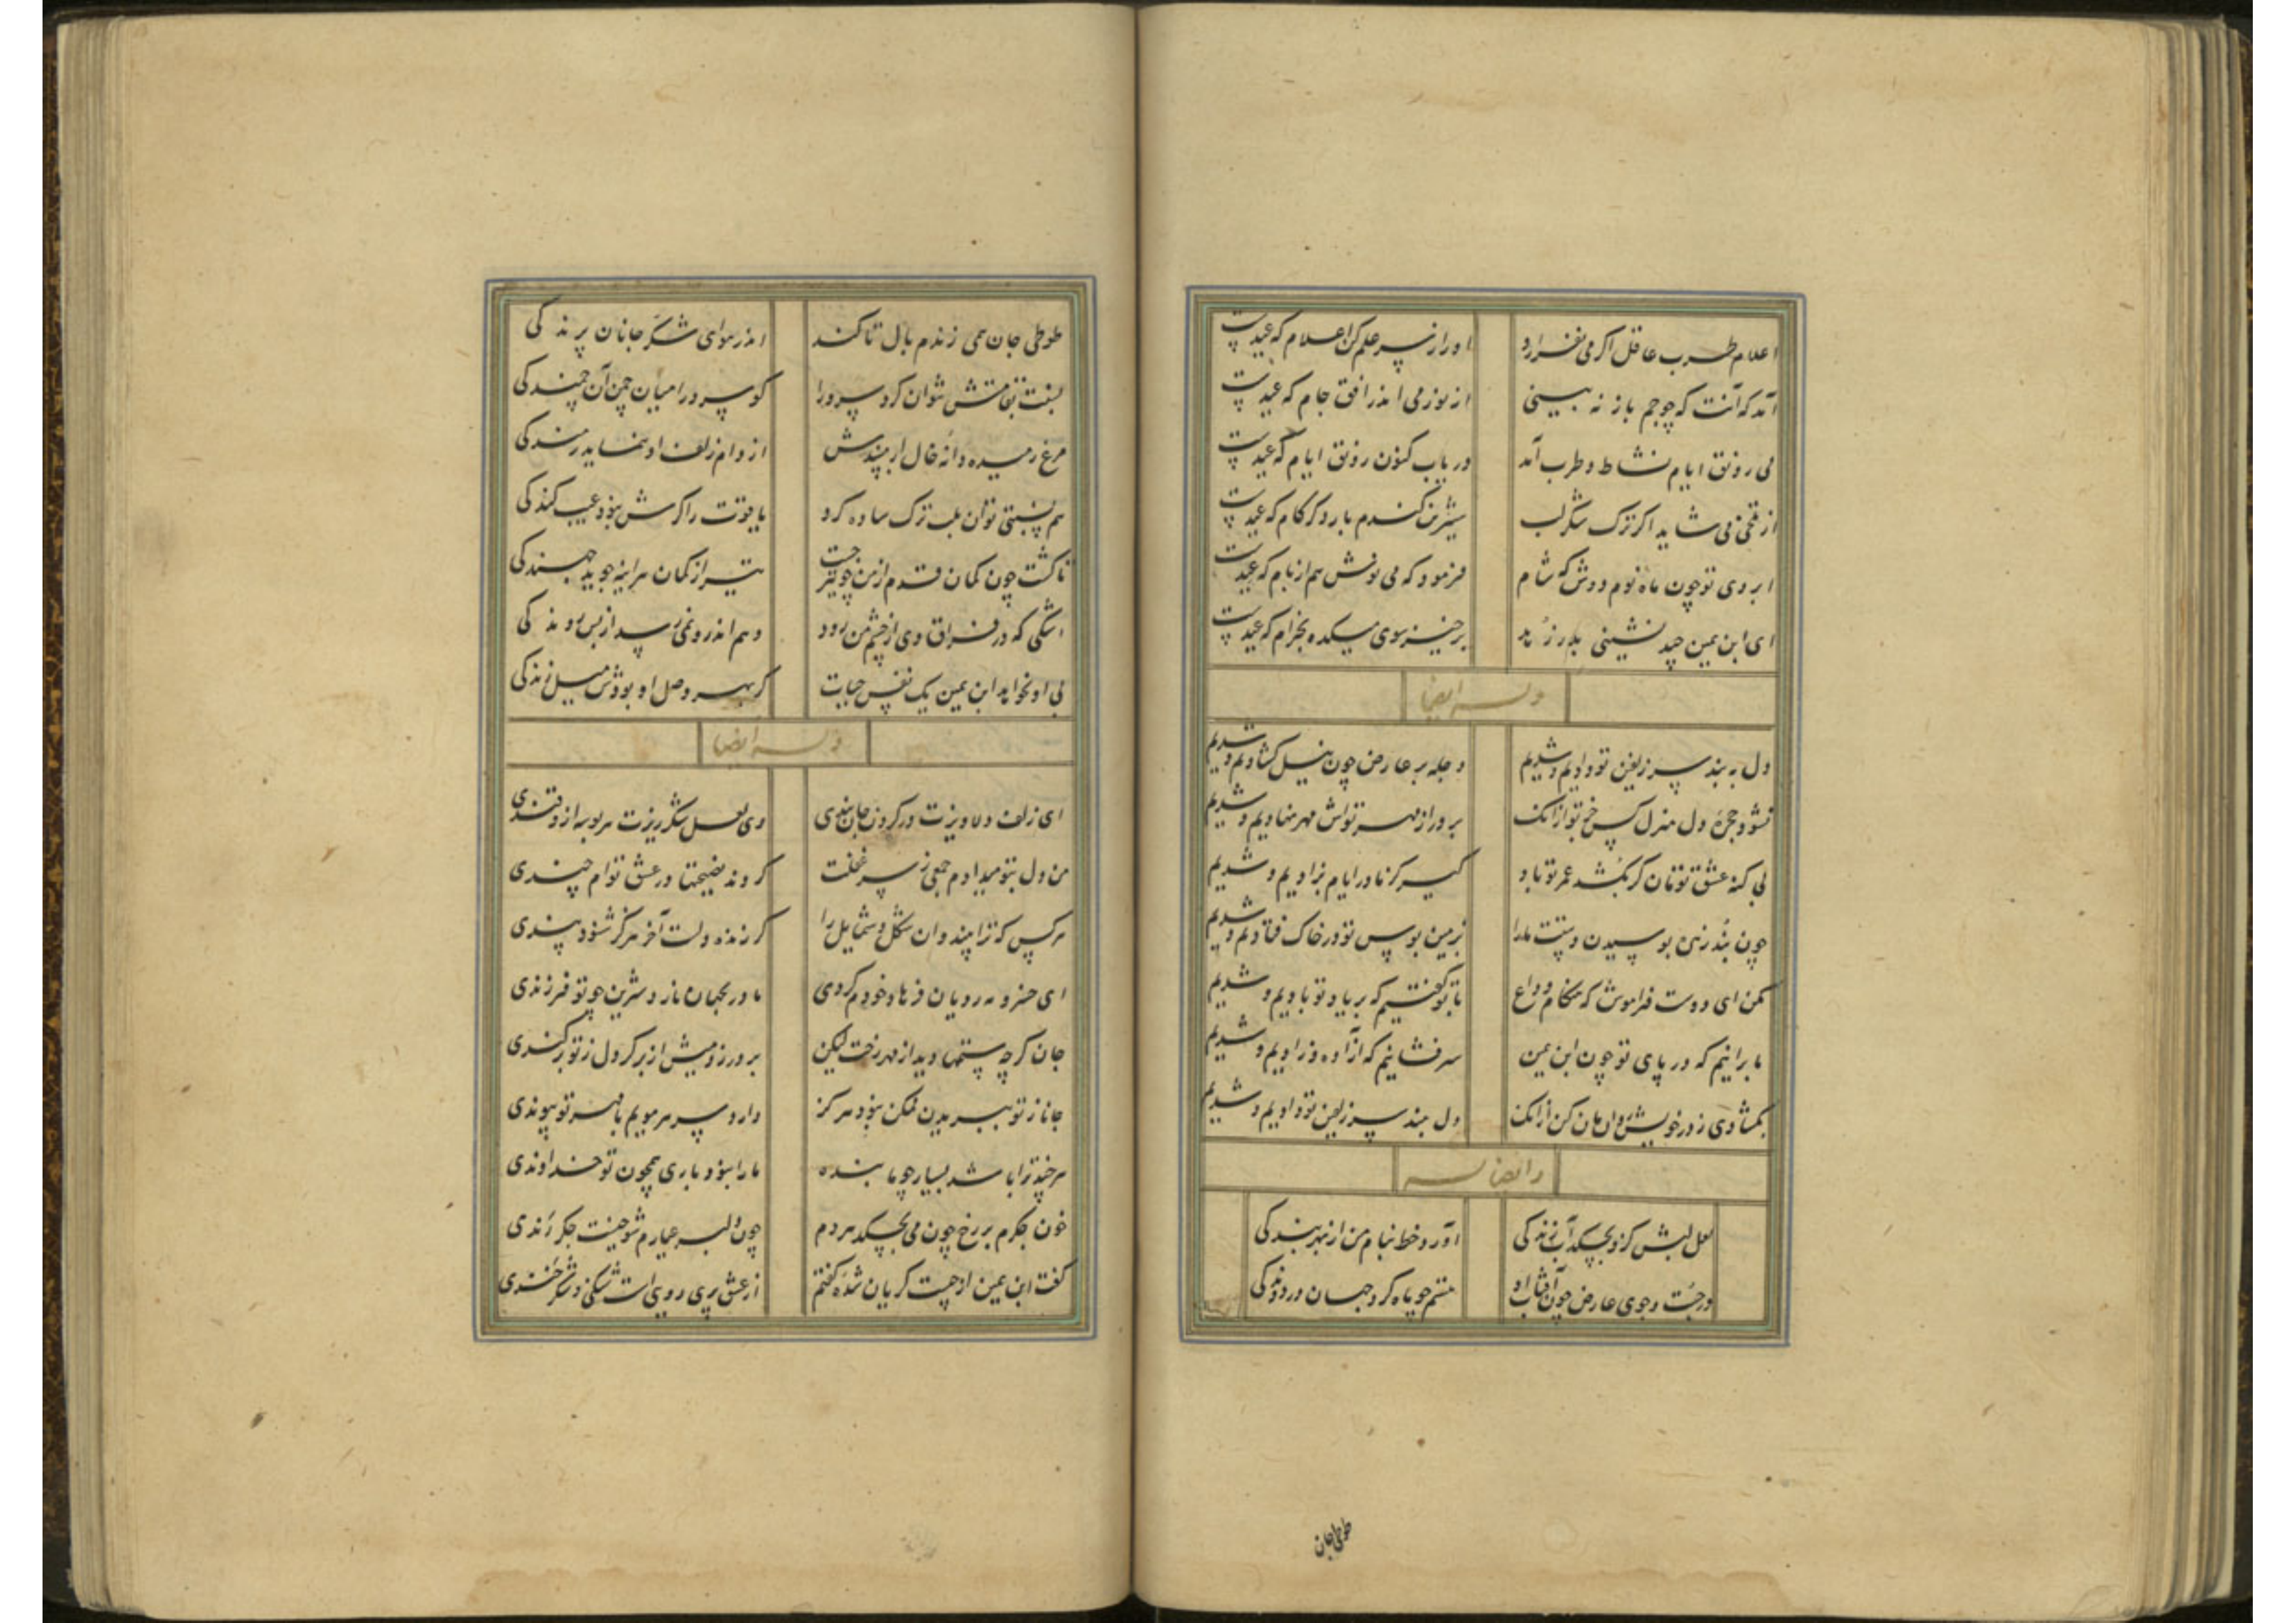 اعلام طرب عاقل اگر می نفرازد او را ز سر علم کن اعلام که عیدست
آمد که آنت که چو جم باز نه بینی از نور می اندر افق جام که عیدست
می رونق ایام نشاط و طرب آمد دریاب کنون رونق ایام که عیدست
از تلخی می شاید اگر ترک شکر لب شیرین کندم بار دگر کام که عیدست
ابروی تو چون ماه نوم دوش که شام فرمود که می نوش هم از بام که عیدست
ای ابن یمین چند نشینی بدر برخیز سوی میکده بخرام که عیدست
وله ایضا
دل به بند سر زلفین تو دادیم و شدیم دجله بر عارض چون نیل گشادیم و شدیم
نشود حجره دل منزل کس جز تو از آنک بر در از مهر توش مهر نهادیم و شدیم
بی گنه عشق توتان گر بکشد عمر تو باد گیر کز مادر ایام نزادیم و شدیم
چون بشد زنده بوسیدن دستت ما را زمین بوس تو در خاک فتادیم و شدیم
مکن ای دوست فراموش که هنگام وداع با تو گفتیم که بر یاد تو بادیم و شدیم
ما برانیم که در پای تو چون ابن یمین سر فشانیم که آزاده و رادیم و شدیم
بگشادی ز در خویش روان مان کن از آنک دل ببند سر زلفین تو دادیم و شدیم
وله ایضا
لعل لبش کزو بچکد آب زندگی آورد خط بنام من از بهر بندگی
در جست و جوی عارض چون آفتاب او هستم چو ماه گرد جهان در دوندگی
طوطی جان
طوطی جان همی زندم بال تا کند اندر هوای شکر جانان پرندگی
نسبت بقامتش نتوان کرد سرو را کو سرو را میان چمن آن چمندگی
مرغ رمیده دانه خال ار ببیندش از دام زلف او ننماید رمندگی
هم نسبتی توان بلب ترک ساده کرد یاقوت را گرش نبود عیب کندگی
تا گشت چون کمان قدم از من چو تیر جست تیر از کمان هر آینه جوید جهندگی
اشکی که در فراق وی از چشم من رود وهم اندرو نمی رسد از بس روندگی
بی او نخواهد ابن یمین یک نفس حیات کز بهر وصل او بودش میل زندگی
وله ایضا
ای زلف دلاویزت در گردن جان بندی وی لعل شکرریزت هر بوسه ازو قندی
من دل بتو میدادم جمعی ز سر غفلت کردند نصیحتها در عشق توام چندی
هر کس که ترا بیند وان شکل و شمایل را گر زنده دلست آخر هرگز شنود پندی
ای خسرو مه رویان فرهاد خودم کردی مادر بجهان نازد شیرین چو تو فرزندی
جان گرچه ستمها دید از مهر رخت لیکن بر ورزدمیش از بر گر دل ز تو برکندی
جانا ز تو ببریدن ممکن نبود هرگز دارد سر هر مویم با مهر تو پیوندی
هرچند ترا باشد بسیار چو ما بنده ما را نبود باری همچون تو خداوندی
خون جگرم بر رخ چون می بچکد هر دم چون دلبر عیارم شوخیست جگر رندی
گفت ابن یمین از چیست گریان شده گفتم از عشق پری رویی است شنگی و شکر خندی